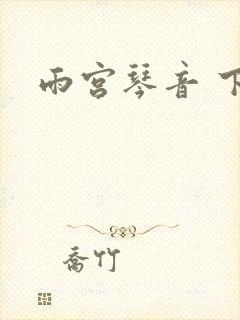 雨宫琴音 下
喬竹